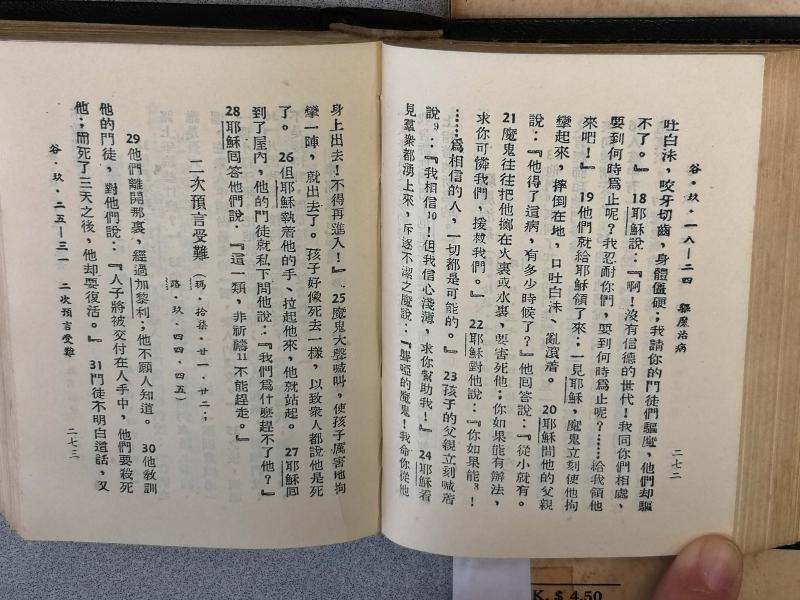 谷·玖·一八—二四　驅魔治病　二七二
吐白沫，咬牙切齒，身體僵硬；我請你的門徒們驅魔，他們却驅
不了。』 18 耶穌說：『啊！沒有信德的世代！我同你們相處，
要到何時爲止呢？我忍耐你們，要到何時爲止呢？……給我領他
來吧！』 19 他們就給耶穌領了來；一見耶穌，魔鬼立刻使他拘
攣起來，摔倒在地，口吐白沫、亂滾着。 20 耶穌問他的父親
說：『他得了這病，有多少時候了？』他回答說：『從小就有。
21 魔鬼往往把他擲在火裏或水裏，要害死他；你如果能有辦法，
求你可憐我們，援救我們。』 22 耶穌對他說：『你如果能⁸！
……爲相信的人，一切都是可能的。』 23 孩子的父親立刻喊着
說⁹：『我相信¹⁰！但我信心淺薄，求你幫助我！』 24 耶穌看
見羣衆都湧上來，斥逐不潔之魔說：『聾啞的魔鬼！我命你從他
身上出去！不得再進入！』 25 魔鬼大聲喊叫，使孩子厲害地拘
攣一陣，就出去了。孩子好像死去一樣，以致衆人都說他是死
了。 26 但耶穌執着他的手、拉起他來，他就站起。 27 耶穌回
到了屋內，他的門徒就私下問他說：『我們爲什麽趕不了他？』
28 耶穌回答他們說：『這一類，非祈禱¹¹不能趕走。』
二次預言受難（瑪·拾柒·廿一·廿二；
路·玖·四四·四五）
29 他們離開那裏，經過加黎利；他不願人知道。 30 他教訓
他的門徒，對他們說：『人子將被交付在人手中，他們要殺死
他；而死了三天之後，他却要復活。』 31 門徒不明白這話，又
谷·玖·二五—三一　二次預言受難　二七三
K. $ 4.50